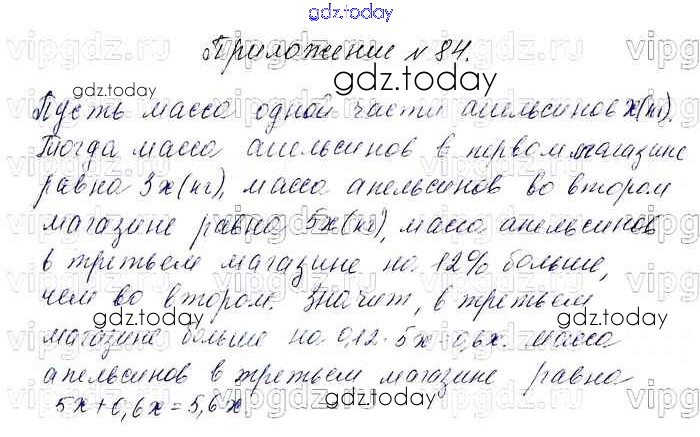 gdz.today
Приложение № 84.
gdz.today
Пусть масса одной части апельсинов x(кг).
Тогда масса апельсинов в первом магазине
равна 3x(кг), масса апельсинов во втором
магазине равна 5x(кг), масса апельсинов
в третьем магазине на 12% больше,
чем во втором. Значит, в третьем
магазине больше на 0,12·5x=0,6x. Масса
апельсинов в третьем магазине равна
5x+0,6x=5,6x
vipgdz.ru
gdz.today
gdz.today
gdz.today
gdz.today
gdz.today